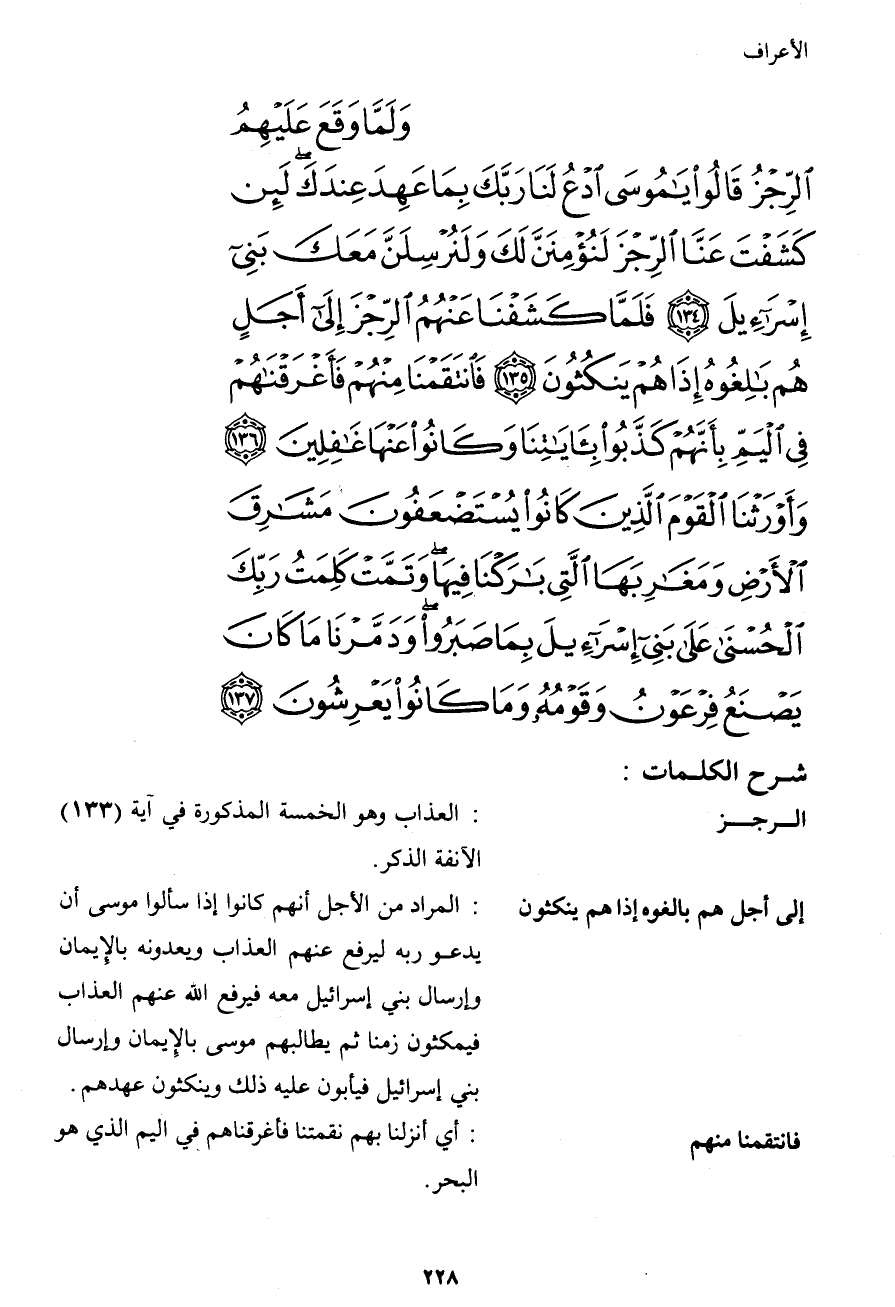 الأعراف
وَلَمَّا وَقَعَ عَلَيْهِمُ
ٱلرِّجْزُ قَالُوا۟ يَٰمُوسَى ٱدْعُ لَنَا رَبَّكَ بِمَا عَهِدَ عِندَكَ ۖ لَئِن
كَشَفْتَ عَنَّا ٱلرِّجْزَ لَنُؤْمِنَنَّ لَكَ وَلَنُرْسِلَنَّ مَعَكَ بَنِىٓ
إِسْرَٰٓءِيلَ ١٣٤ فَلَمَّا كَشَفْنَا عَنْهُمُ ٱلرِّجْزَ إِلَىٰٓ أَجَلٍ
هُم بَٰلِغُوهُ إِذَا هُمْ يَنكُثُونَ ١٣٥ فَٱنتَقَمْنَا مِنْهُمْ فَأَغْرَقْنَٰهُمْ
فِى ٱلْيَمِّ بِأَنَّهُمْ كَذَّبُوا۟ بِـَٔايَٰتِنَا وَكَانُوا۟ عَنْهَا غَٰفِلِينَ ١٣٦
وَأَوْرَثْنَا ٱلْقَوْمَ ٱلَّذِينَ كَانُوا۟ يُسْتَضْعَفُونَ مَشَٰرِقَ
ٱلْأَرْضِ وَمَغَٰرِبَهَا ٱلَّتِى بَٰرَكْنَا فِيهَا ۖ وَتَمَّتْ كَلِمَتُ رَبِّكَ
ٱلْحُسْنَىٰ عَلَىٰ بَنِىٓ إِسْرَٰٓءِيلَ بِمَا صَبَرُوا۟ ۖ وَدَمَّرْنَا مَا كَانَ
يَصْنَعُ فِرْعَوْنُ وَقَوْمُهُۥ وَمَا كَانُوا۟ يَعْرِشُونَ ١٣٧
شرح الكلمات :
الرجز : العذاب وهو الخمسة المذكورة في آية (١٣٣)
الآنفة الذكر.
إلى أجل هم بالغوه إذا هم ينكثون : المراد من الأجل أنهم كانوا إذا سألوا موسى أن
يدعو ربه ليرفع عنهم العذاب ويعدونه بالإِيمان
وإرسال بني إسرائيل معه فيرفع الله عنهم العذاب
فيمكثون زمنا ثم يطالبهم موسى بالإِيمان وإرسال
بني إسرائيل فيأبون عليه ذلك وينكثون عهدهم.
فانتقمنا منهم : أي أنزلنا بهم نقمتنا فأغرقناهم في اليم الذي هو
البحر.
٢٢٨